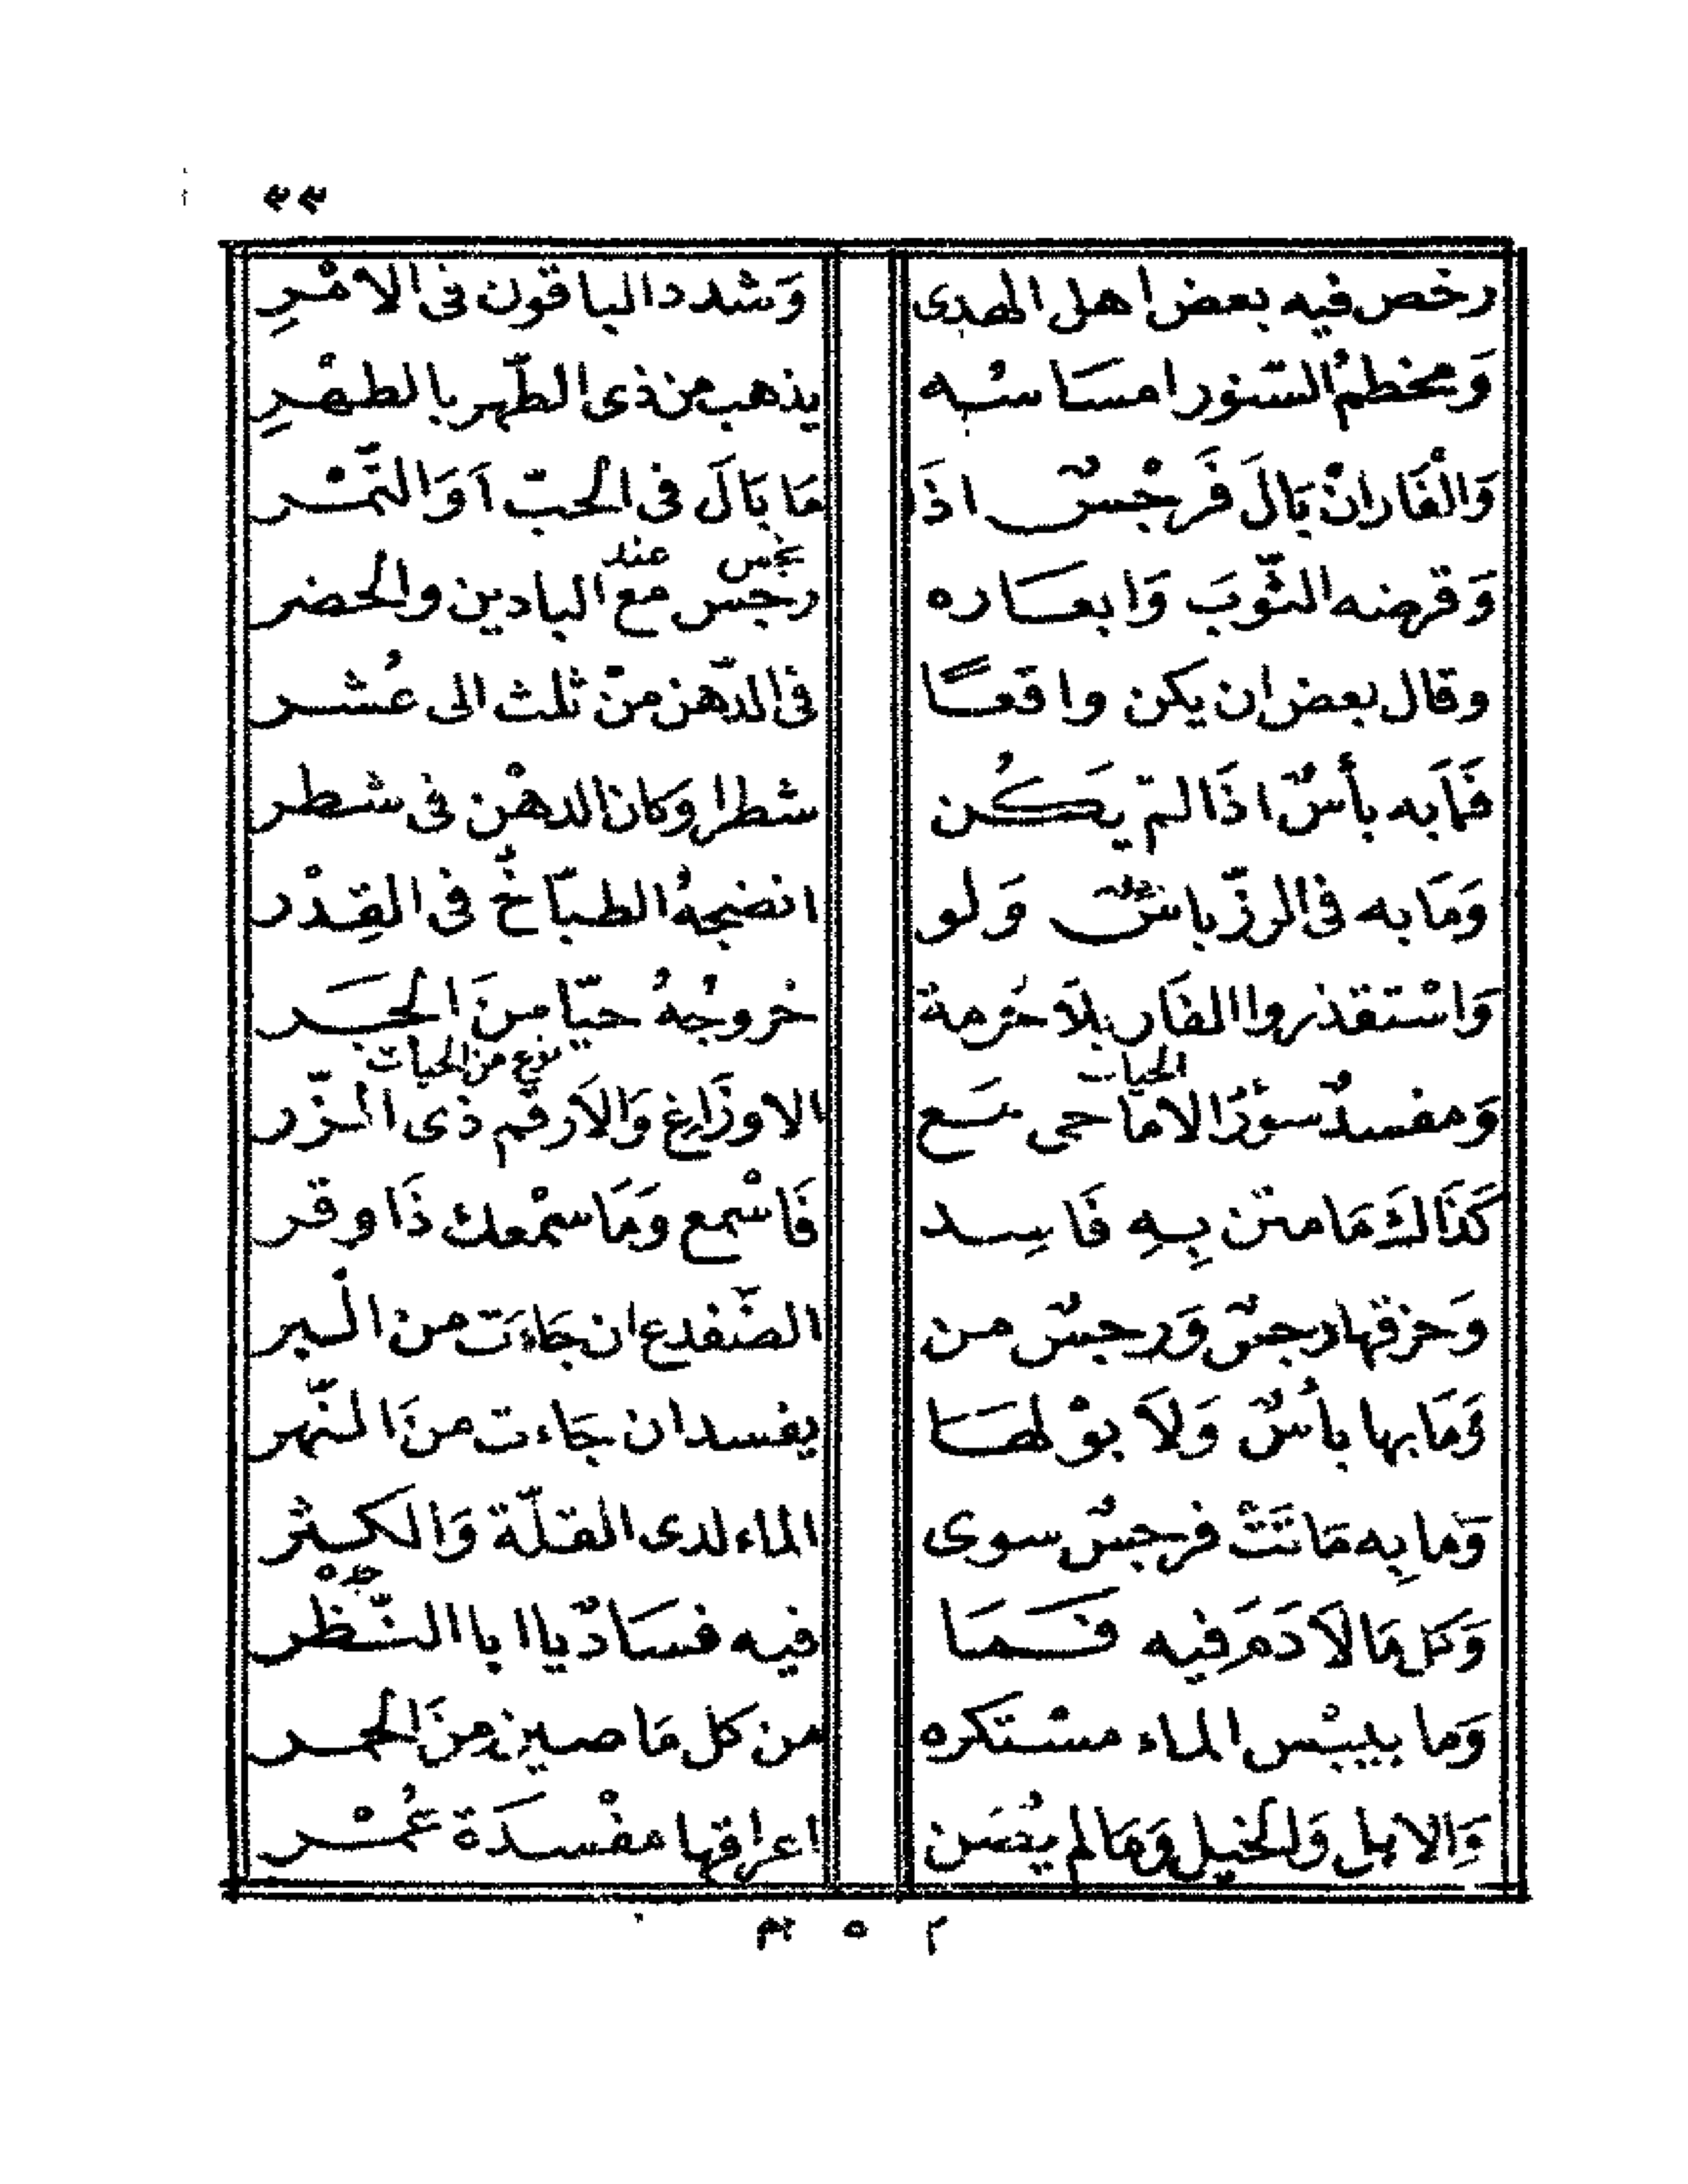 ٢٢
رخص فيه بعض اهل الهدى وَشدد الباقون فى الامْرِ
وَمخطمُ السّنور امسَاسْه يذهب من ذى الطّهر بالطهْرِ
وَالْفَاران بَالَ فَرجْسٌ اذَا مَا بَالَ فى الحبّ آوَ التّمْر
نجس عند
وَقرضه الثّوبَ وَابعَاره رجس مع البادين والحضر
وقال بعض ان يكن واقعًا فى الدّهن منّ ثلث الى عُشر
فمَا به بأسٌ اذَا لم يَكُن شطرا وكان الدهْن فى شطر
وَمَا به فى الرزّ باسٌ وَلو انضجهُ الطبّاخٌ فى القِدْر
وَاسْتقذروا الفَار بلاَ حُرمة خروجُهُ حيّا مِنَ الجحَر
الحيات نوع من الحيات
وَمفسدٌ سؤرُ الاماحى مَع الاوزَاغ وَالاَرقم ذى الزّر
كَذَالكَ مَا متن بِهِ فَاسِد فَاسْمع وَمَا سمْعك ذَا وقر
وَخزقها رجسٌ وَرجسٌ من الضّفدع ان جَاءَت من الْبر
وَمَا بها بأسٌ وَلاَ بوْلهَا يفسد ان جَاءت منَ النّهر
وَما بِه مَاتَتْ فرجسٌ سوى الماء لدى القلّة وَالكثر
وَكل مَا لاَ دَمَ فيه فَمَا فيه فسَادٌ يا ابا النّظْر
وَما بيبْس الماء مسْتكره من كل مَا صين منَ الحجر
وَالابل وَالخيل وَمَا لم يُصَن اعراقها مفْسدَة عُمْر